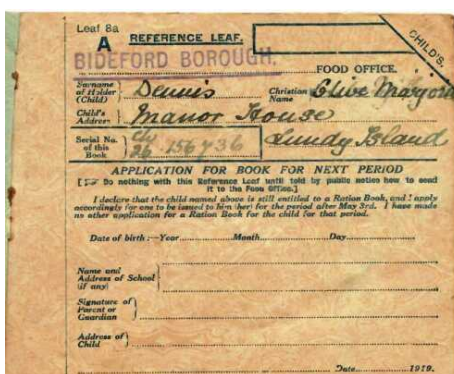 Leaf 8a
A REFERENCE LEAF.
CHILD'S.
BIDEFORD BOROUGH.
FOOD OFFICE.
Surname of Holder (Child) } Dennis Christian Name } Olive Marjorie
Child's Address } Manor House
Serial No. of this Book } 156736 Lundy Island
APPLICATION FOR BOOK FOR NEXT PERIOD
Do nothing with this Reference Leaf until told by public notice how to send
it to the Food Office.]
I declare that the child named above is still entitled to a Ration Book, and I apply
accordingly for one to be issued to him (her) for the period after May 3rd. I have made
no other application for a Ration Book for the child for that period.
Date of birth :—Year Month Day
Name and
Address of School
(if any)
Signature of
Parent or
Guardian
Address of
Child
Date 1919.